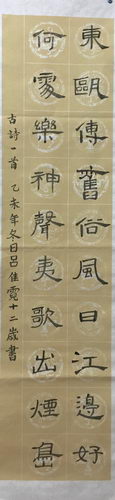 東甌傳舊俗風日江邊好
何處樂神聲夷歌出煙島
古詩一首乙未年冬日呂佳霓十二歲書